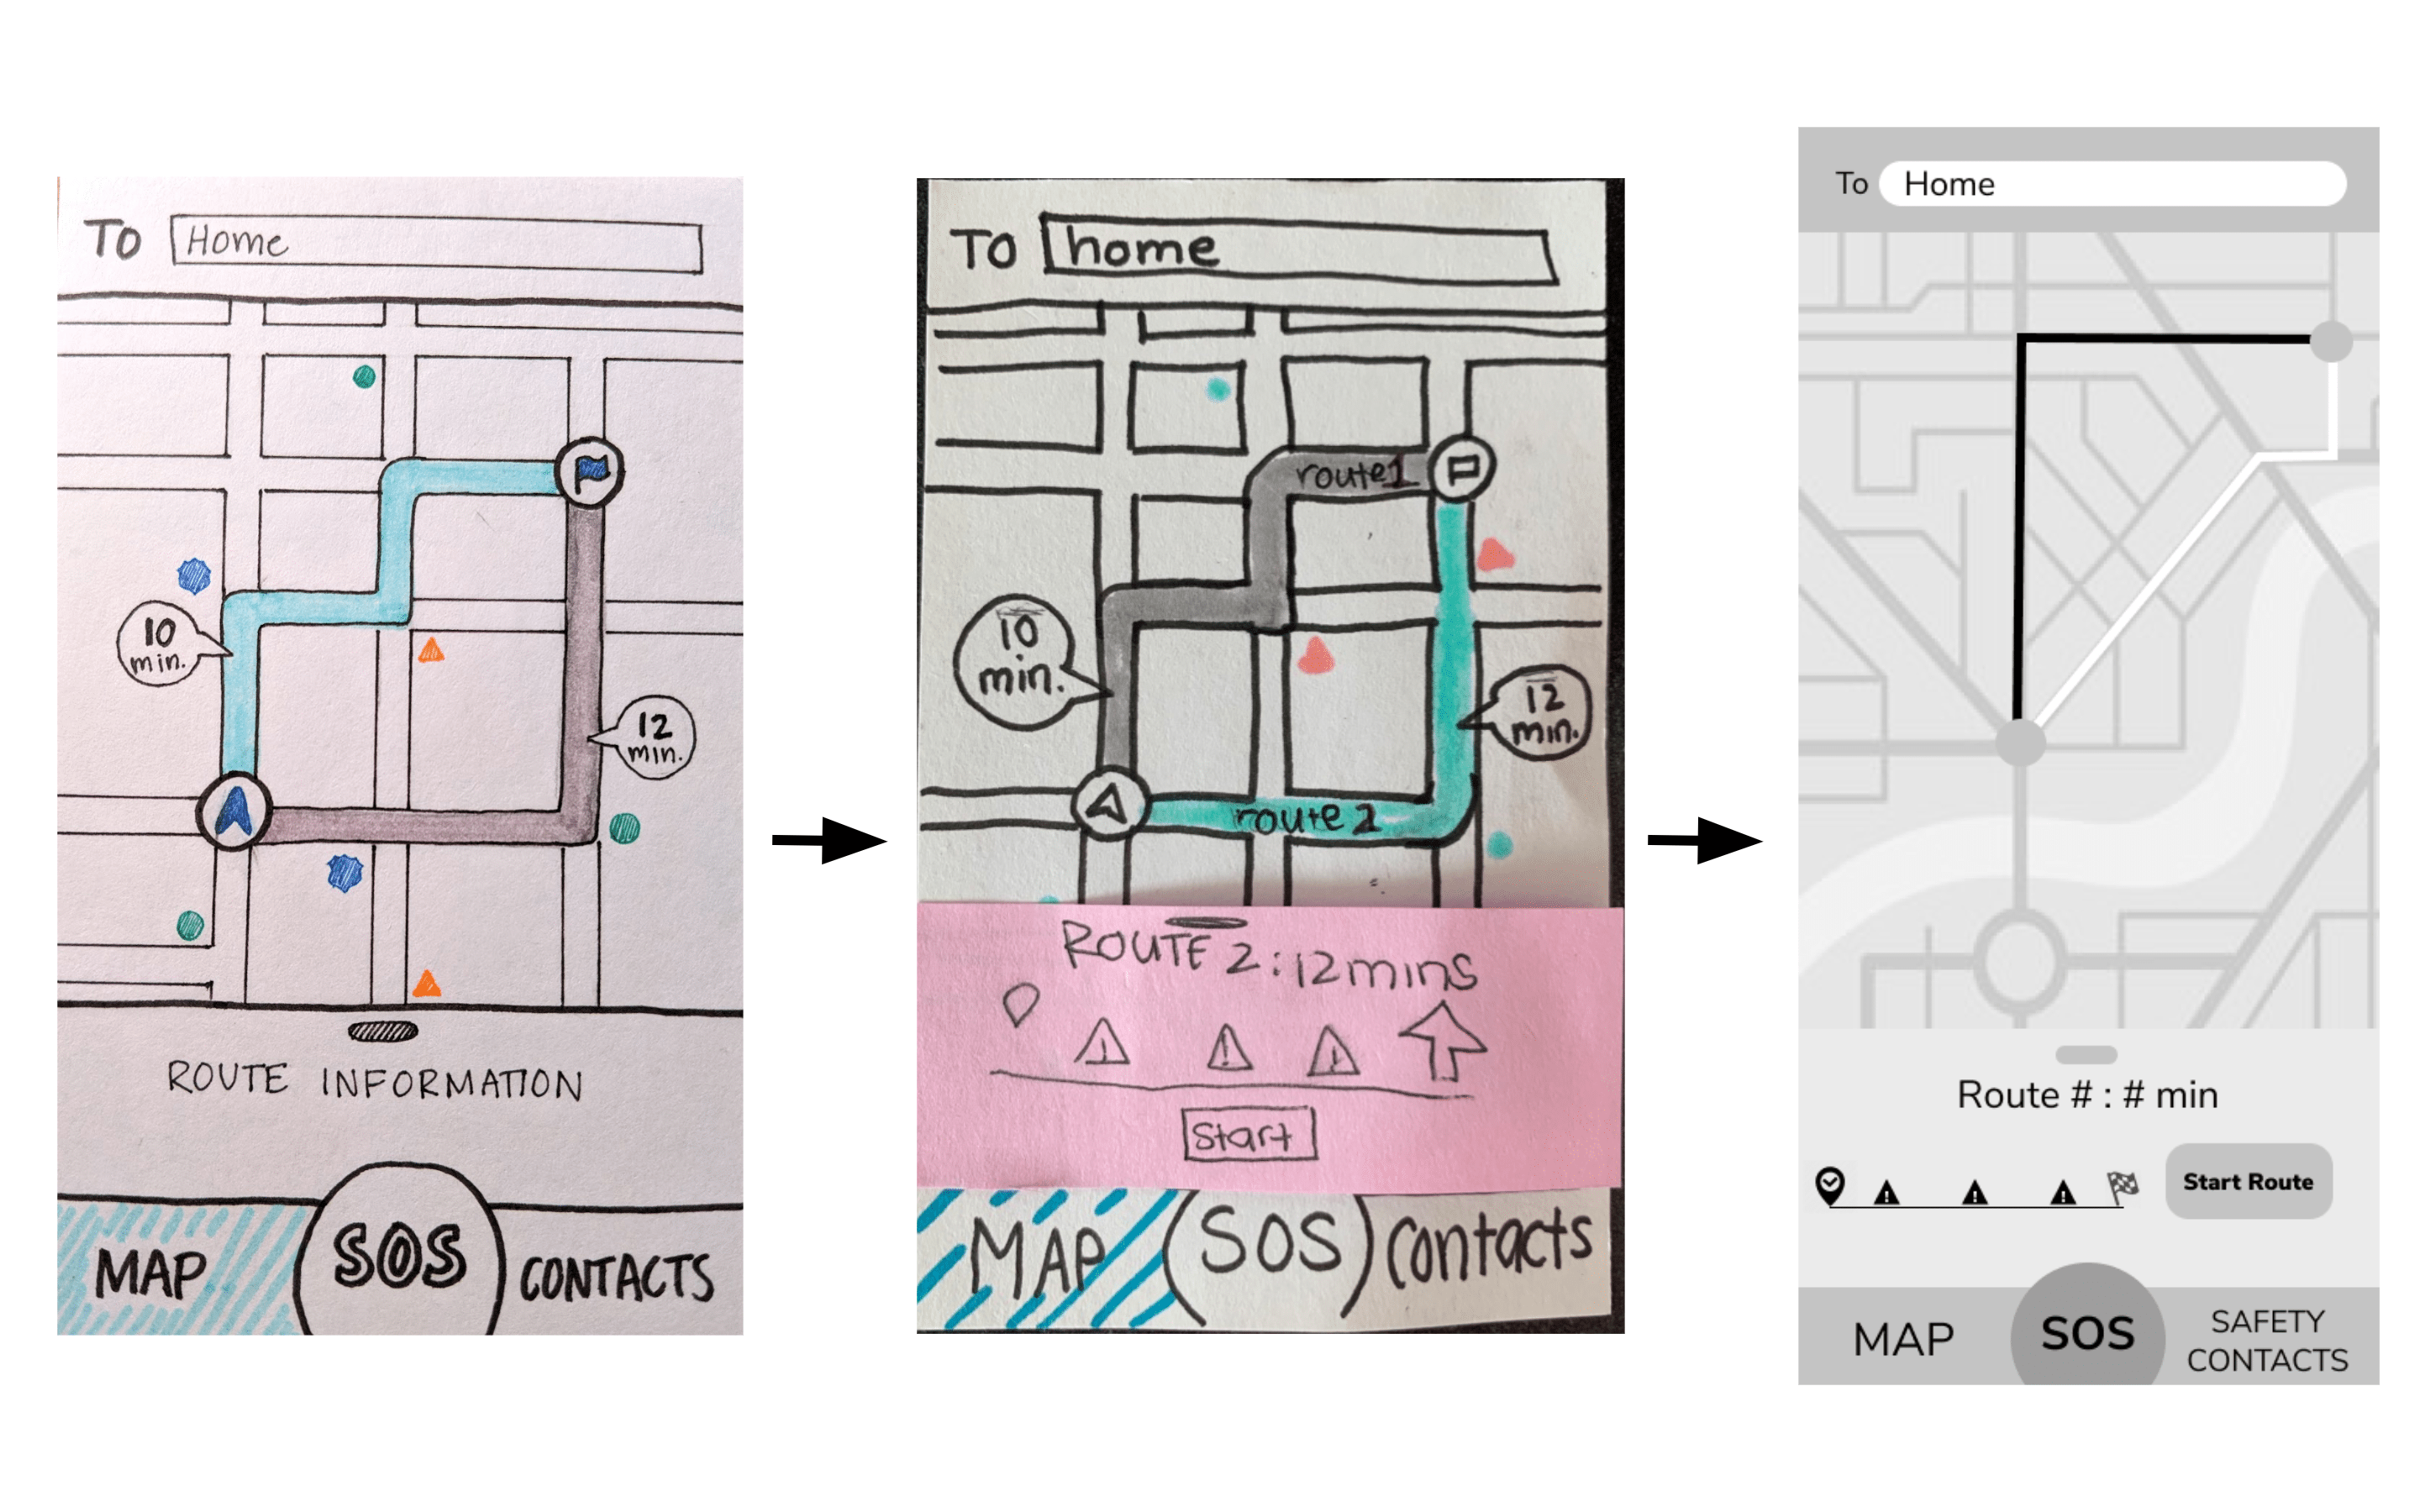 TO Home
10
min.
12
min.
ROUTE INFORMATION
MAP
SOS
CONTACTS
TO home
route1
10
min.
12
min.
route 2
ROUTE 2:12mins
Start
MAP
SOS
contacts
To Home
Route # : # min
Start Route
MAP
SOS
SAFETY
CONTACTS